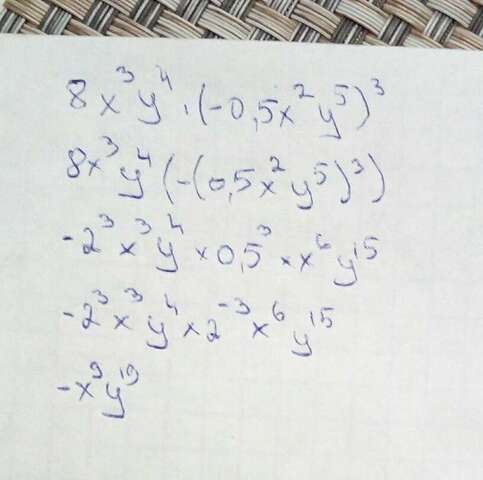 8x³y⁴ · (-0,5x²y⁵)³
8x³y⁴(-(0,5x²y⁵)³)
-2³x³y⁴ × 0,5³ × x⁶y¹⁵
-2³x³y⁴ × 2⁻³x⁶y¹⁵
-x⁹y¹⁹